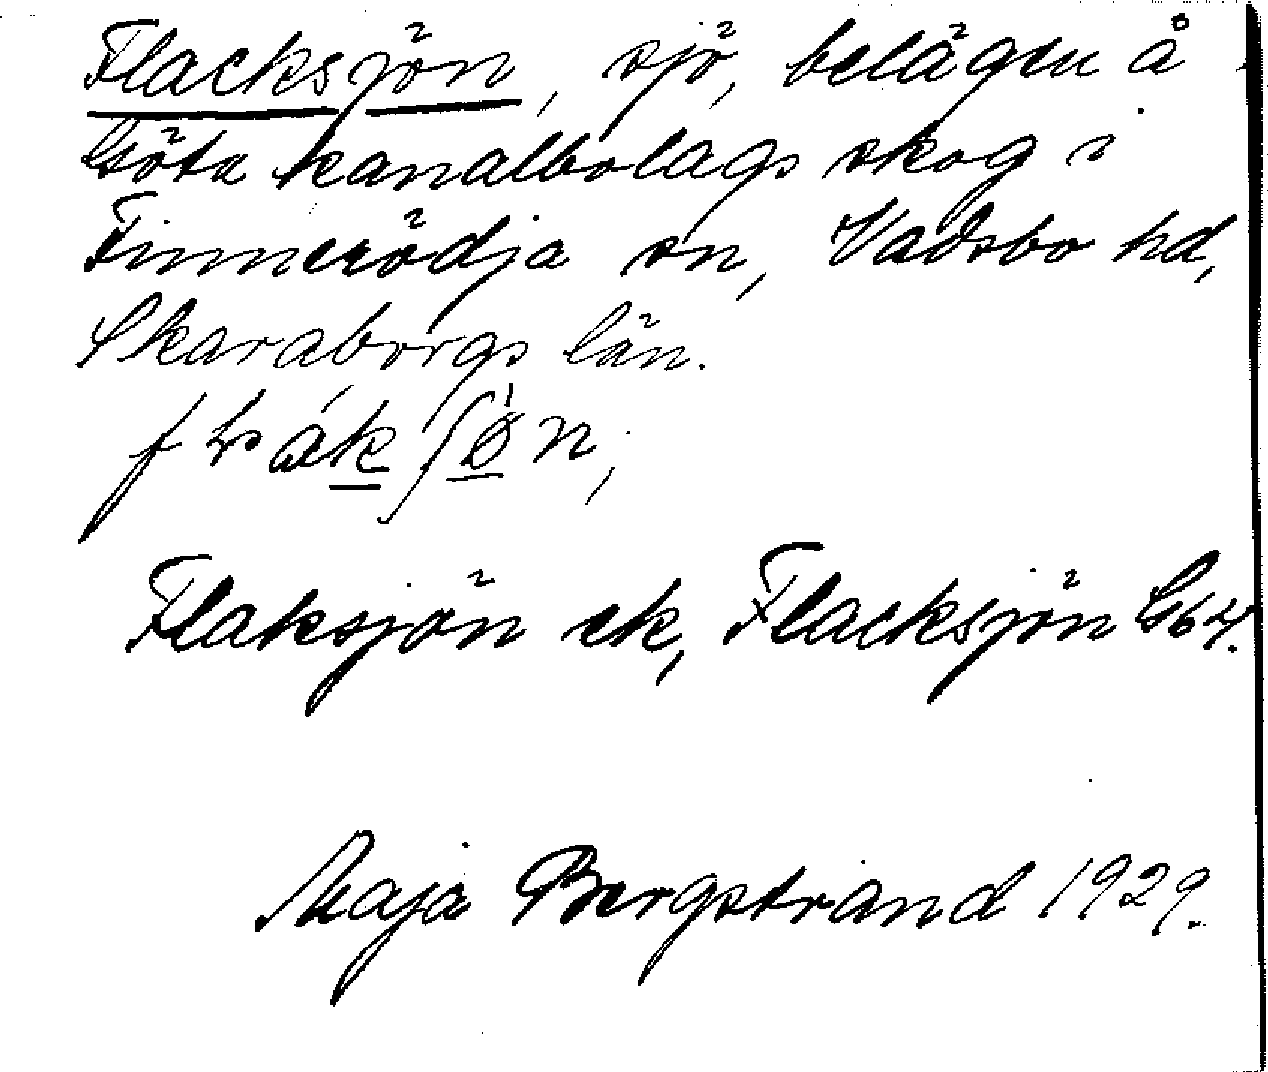 Flacksjön, sjö, belägen å
Göta kanalbolags skog i
Finnerödja sn, Vadsbo hd,
Skaraborgs län.
Flaksjön ek, Flacksjön Gbg.
Maja Bergstrand 1929.